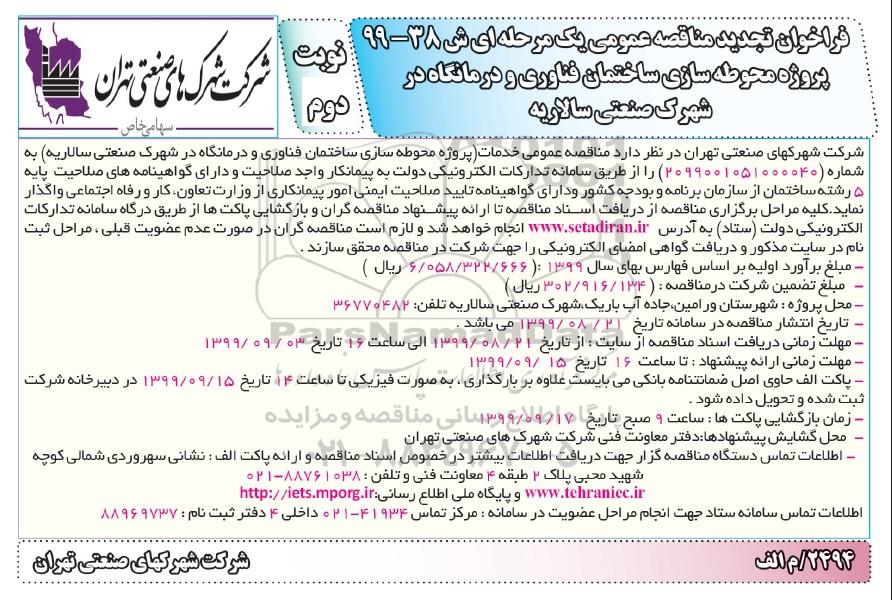 فراخوان تجدید مناقصه عمومی یک مرحله ای ش ۳۸-۹۹
پروژه محوطه سازی ساختمان فناوری و درمانگاه در
شهرک صنعتی سالاریه
نوبت
دوم
شرکت شهرک های صنعتی تهران
سهامی خاص
شرکت شهرکهای صنعتی تهران در نظر دارد مناقصه عمومی خدمات(پروژه محوطه سازی ساختمان فناوری و درمانگاه در شهرک صنعتی سالاریه) به
شماره (۲۰۹۹۰۰۱۰۵۱۰۰۰۰۴۰) را از طریق سامانه تدارکات الکترونیکی دولت به پیمانکار واجد صلاحیت و دارای گواهینامه های صلاحیت پایه
۵ رشته ساختمان از سازمان برنامه و بودجه کشور ودارای گواهینامه تایید صلاحیت ایمنی امور پیمانکاری از وزارت تعاون، کار و رفاه اجتماعی واگذار
نماید.کلیه مراحل برگزاری مناقصه از دریافت اسناد مناقصه تا ارائه پیشنهاد مناقصه گران و بازگشایی پاکت ها از طریق درگاه سامانه تدارکات
الکترونیکی دولت (ستاد) به آدرس www.setadiran.ir انجام خواهد شد و لازم است مناقصه گران در صورت عدم عضویت قبلی ، مراحل ثبت
نام در سایت مذکور و دریافت گواهی امضای الکترونیکی را جهت شرکت در مناقصه محقق سازند .
- مبلغ برآورد اولیه بر اساس فهارس بهای سال ۱۳۹۹ :( ۶/۰۵۸/۳۲۲/۶۶۶ ریال )
- مبلغ تضمین شرکت درمناقصه : ( ۳۰۲/۹۱۶/۱۳۴ ریال )
- محل پروژه : شهرستان ورامین،جاده آب باریک،شهرک صنعتی سالاریه تلفن: ۳۶۷۷۰۴۸۲
- تاریخ انتشار مناقصه در سامانه تاریخ ۲۱ / ۰۸ /۱۳۹۹ می باشد .
- مهلت زمانی دریافت اسناد مناقصه از سایت : از تاریخ ۱۳۹۹/۰۸/۲۱ الی ساعت ۱۶ تاریخ ۰۳ /۰۹ /۱۳۹۹
- مهلت زمانی ارائه پیشنهاد : تا ساعت ۱۶ تاریخ ۱۵ /۰۹/ ۱۳۹۹
- پاکت الف حاوی اصل ضمانتنامه بانکی می بایست علاوه بر بارگذاری ، به صورت فیزیکی تا ساعت ۱۴ تاریخ ۱۳۹۹/۰۹/۱۵ در دبیرخانه شرکت
ثبت شده و تحویل داده شود .
- زمان بازگشایی پاکت ها : ساعت ۹ صبح تاریخ ۱۳۹۹/۰۹/۱۷
- محل گشایش پیشنهادها:دفتر معاونت فنی شرکت شهرک های صنعتی تهران
- اطلاعات تماس دستگاه مناقصه گزار جهت دریافت اطلاعات بیشتر در خصوص اسناد مناقصه و ارائه پاکت الف : نشانی سهروردی شمالی کوچه
شهید محبی پلاک ۲ طبقه ۴ معاونت فنی و تلفن : ۸۸۷۶۱۰۳۸-۰۲۱
www.tehraniec.ir و پایگاه ملی اطلاع رسانی:http://iets.mporg.ir
اطلاعات تماس سامانه ستاد جهت انجام مراحل عضویت در سامانه : مرکز تماس ۴۱۹۳۴-۰۲۱ داخلی ۴ دفتر ثبت نام : ۸۸۹۶۹۷۳۷
ParsNamadData
پایگاه اطلاع رسانی مناقصه و مزایده
۲۴۹۴/م الف
شرکت شهرکهای صنعتی تهران